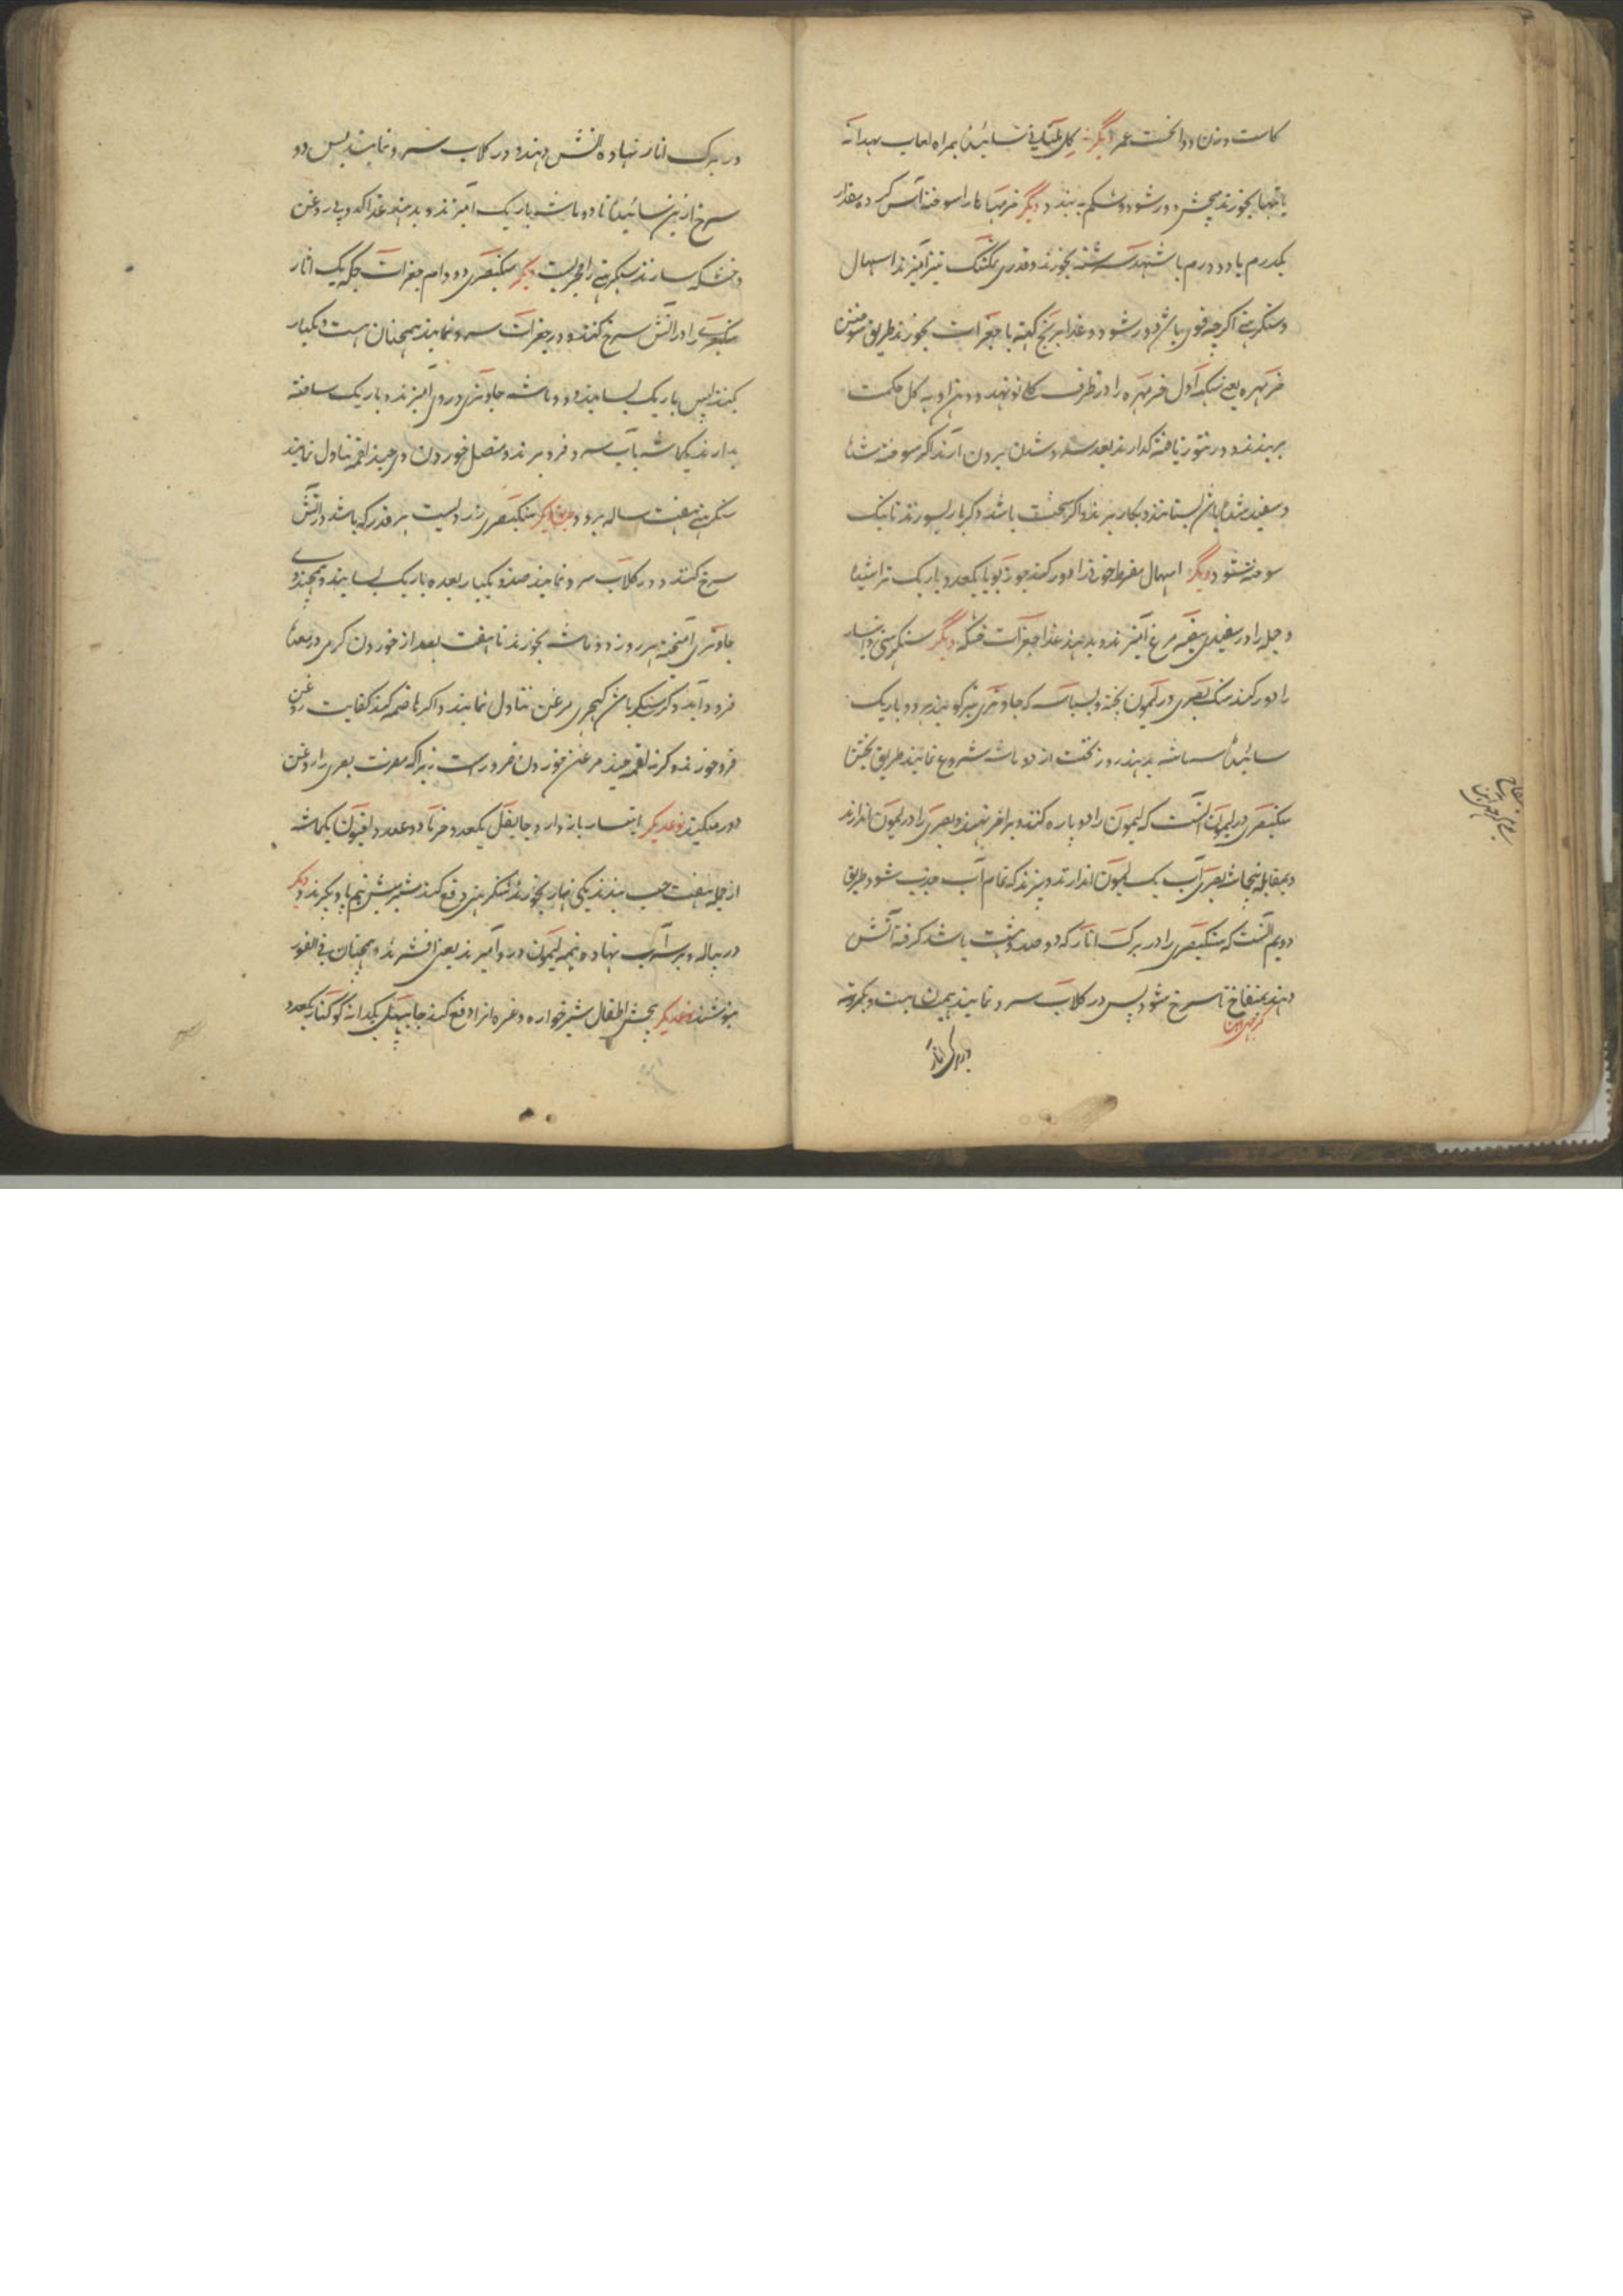 کاست وزن دوا نخست عمر دیگر گل ملتانی سائیده همراه لعاب بهدانه
یا تنها بخورند پیچش دور شود و شکم به بندد دیگر خرمهرها را سوخته آس کرده مقدار
یکدرم یا دو درم با شهد سرشته بخورند و قدری نیز آمیزند اسهال
و سنگرهنی اگرچه قوی باشد دور شود و غذا برنج کهنه با جغرات بخورند طریق سوختن
خرمهره یعنی سنکه اول خرمهره را در ظرف گلی نو نهند و دهن او به گل حکمت
ببندند و در تنور تافته گذارند بعد سرد شدن برون آرند اگر سوخته شد
و سفید شده باشد بستانند و بکار برند و اگر سخت باشد دگر بار بسوزند تا نیک
سوخته شود دیگر اسهال مفرط خونی را دور کند جوز بویا یکعدد باریک تراشیده
و جمله را در سفیدی بیضه مرغ آمیزند و بدهند غذا جغرات خشکه دیگر سنگرهنی و
را دور کند سنک بصری در لیمون پخته و بسباسه که جاوتری نیز گویند هر دو باریک
سائیده سه ماشه بدهند روز نخست از دو ماشه شروع نمایند طریق پختن
سنکبصری در لیمون آنست که لیمون را دو پاره کنند و بر اخگر نهند و بصری را در لیمون اندازند
و بمقابله پنجماشه بصری آب یک لیمون اندازند و بپزند که تمام آب جذب شود طریق
دویم آنست که سنکبصری را در برک انار که دو صد و شت باشد گرفته آتش
دهند بمنفاخ تا سرخ شود پس در کلاب سرد نمایند همین بیست و یکمرتبه
در برک انار
در برک انار نهاده آتش دهند و در کلاب سرد نمایند پس دو
سرخ ازین سائیده تا دو ماشه باریک آمیزند و بدهند غذا کدو بی روغن
و خشکه سازند سنگرهنی را مجربست دیگر سنکبصری دو دام جغرات چکه یک اثار
سنکبصری را در آتش سرخ کنند و در جغرات سرد نمایند همچنان بیست و یکبار
کنند پس باریک بسایند و دو ماشه جاوتری در وی آمیزند و باریک ساخته
بدارند یکماشه با آب سرد فرو برند و متصل خوردن وی چند لقمه تناول نمایند
سنگرهنی هفت ساله برود طریق دیگر سنکبصری زرد بیست هر قدر که باشد در آتش
سرخ کنند و در کلاب سرد نمایند صد و یکبار بعده باریک بسایند و همچند وی
جاوتری آمیخته هر روز دو ماشه بخورند تا هفت بعد از خوردن گرمی در معده
فرود آید کهچری مرغن تناول نمایند و اگر هاضمه کند کفایت روغن
فرو خورند و گرنه لقمه چند مرغن خوردن ضرورست زیراکه مضرت بصری را روغن
دور میکند نوعدیگر باز دارد جایفل یکعدد خرما دو عدد افیون یکماشه
از جمله هفت حب بندند یکی نهار بخورند سنگرهنی دفع کند شیر میش نیم پاو بگیرند دیگر
در پیاله و بر سر آب نهاده نیمه لیمون در و آمیزند یعنی افشرند و همچنان فی الفور
بنوشند نوعدیگر پیچش اطفال شیرخواره و غیره انرا دفع کند یکدانه کوکنار یکعدد